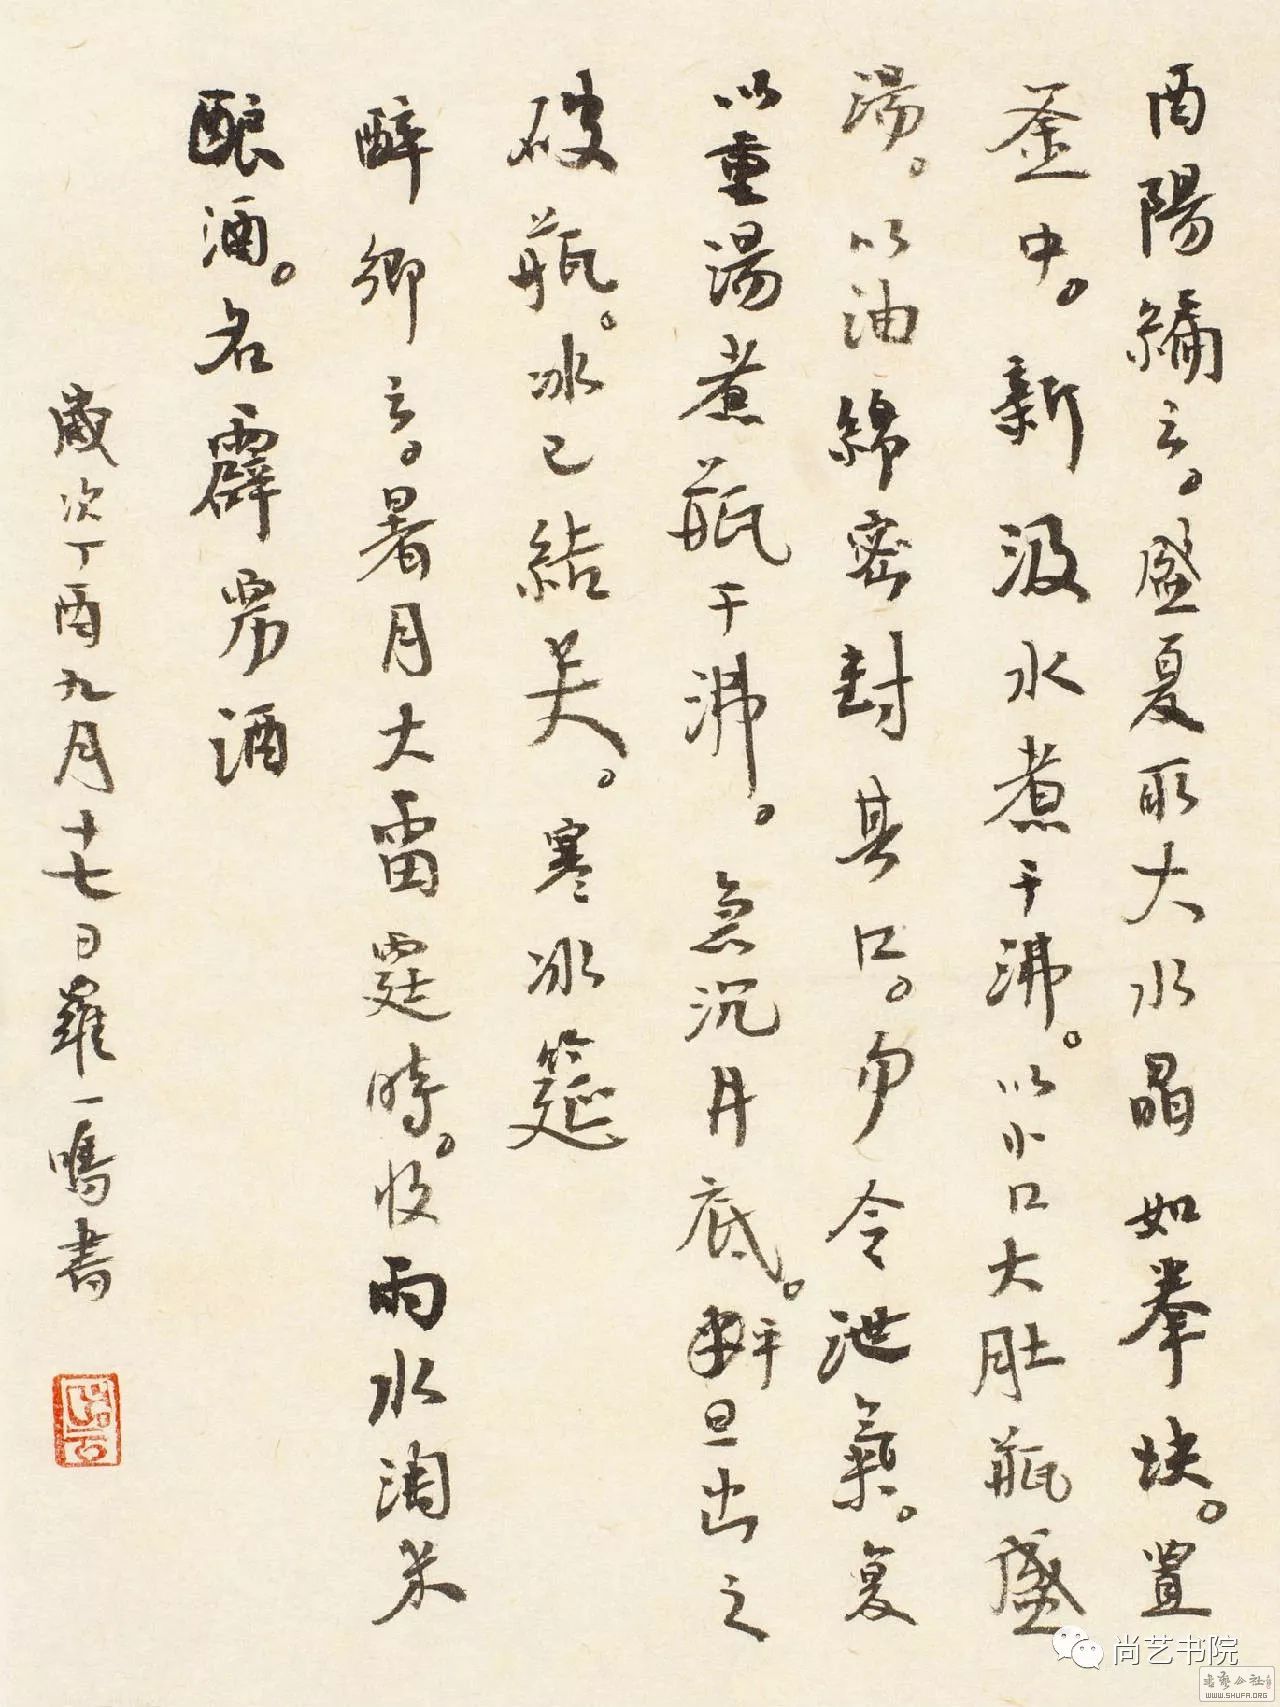 酉陽編云。盛夏取大水晶如拳块。置
釜中。新汲水煮千沸。以小口大肚瓶盛
湯。以油綿密封其口。勿令泄氣。复
以重湯煮瓶千沸。急沉井底。旦出之
破瓶。冰已結矣。寒冰筵
醉卿云。暑月大雷霆時。收雨水淘米
酿酒。名霹雳酒
歲次丁酉九月十七日羅一鳴書
尚艺书院
WWW.SHUFA.ORG